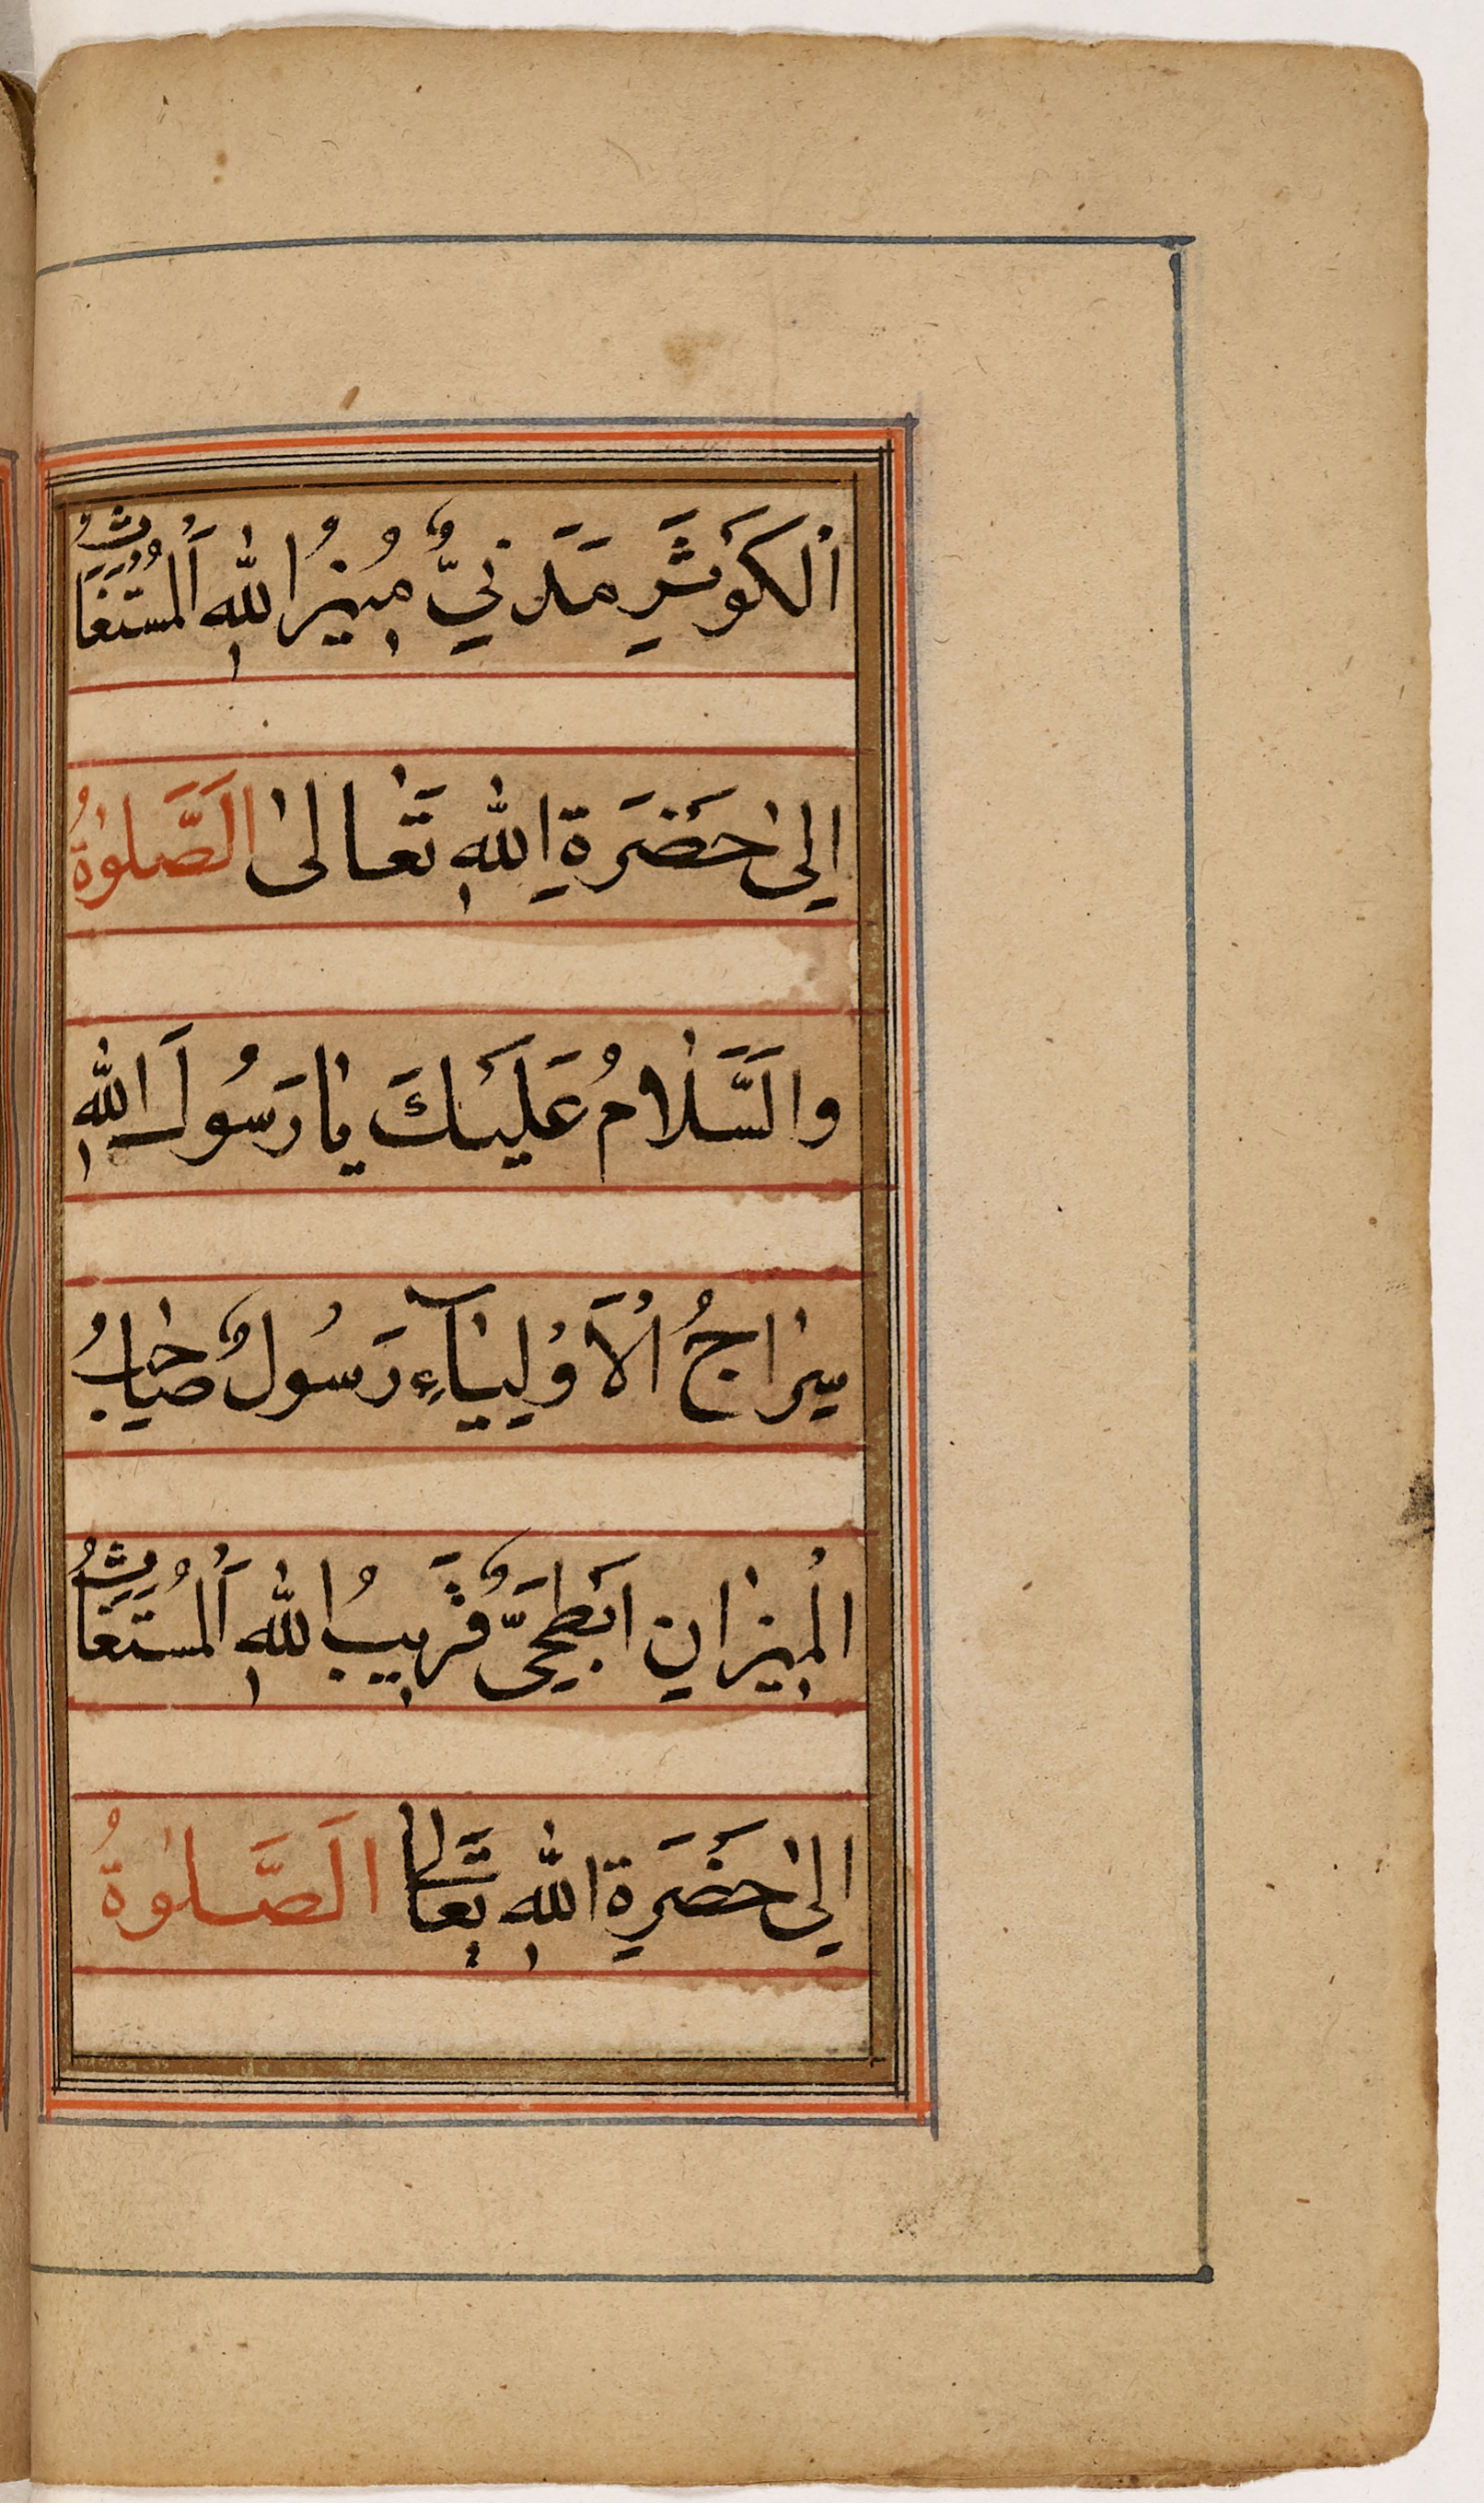 اَلْكَوْثَرِ مَدَنِيٌّ مُنِيْرُ اللّٰهِ اَلْمُسْتَغَاثُ
اِلىٰ حَضْرَةِ اللّٰهِ تَعَالىٰ اَلصَّلوٰةُ
وَالسَّلَامُ عَلَيْكَ يَا رَسُولَ اللّٰهِ
سِرَاجُ الْاَوْلِيَآءِ رَسُولٌ صَاحِبُ
الْمِيْزَانِ اَبْطَحِيٌّ قَرِيْبُ اللّٰهِ اَلْمُسْتَغَاثُ
اِلىٰ حَضْرَةِ اللّٰهِ تَعَالىٰ اَلصَّلوٰةُ